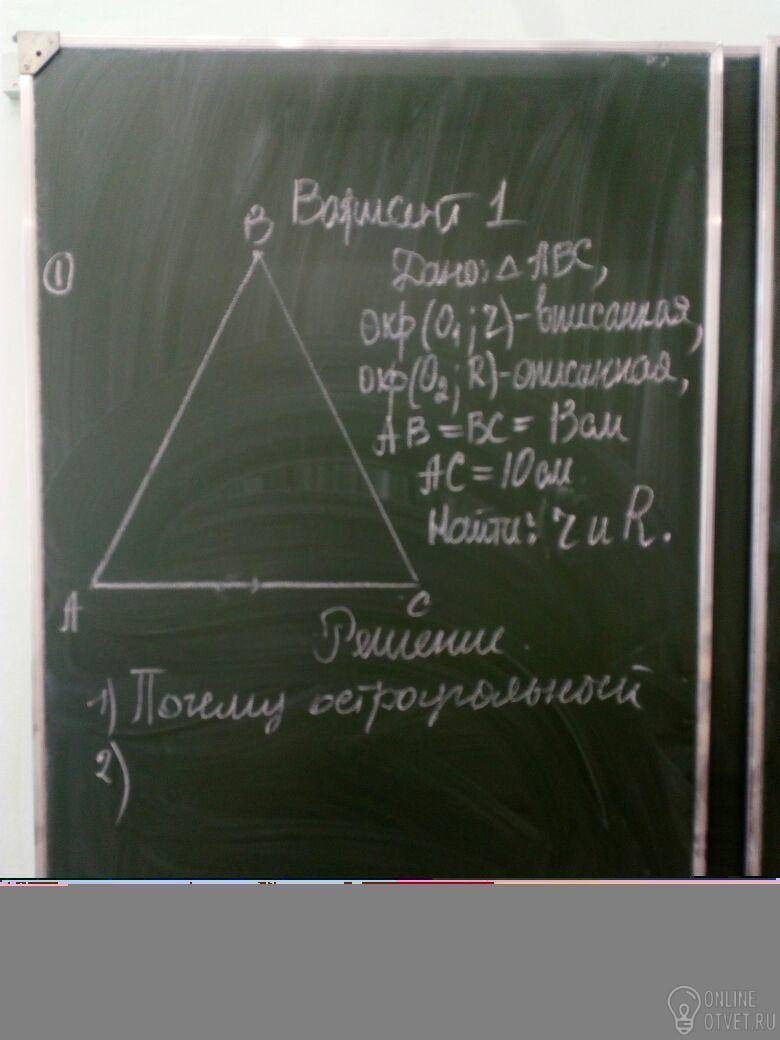 Вариант 1
B
①
Дано: △ ABC,
окр(O₁; r) - вписанная,
окр(O₂; R) - описанная,
AB = BC = 13 см
AC = 10 см
Найти: r и R.
A
C
Решение.
1) Почему остроугольный
2)
ONLINE
OTVET.RU